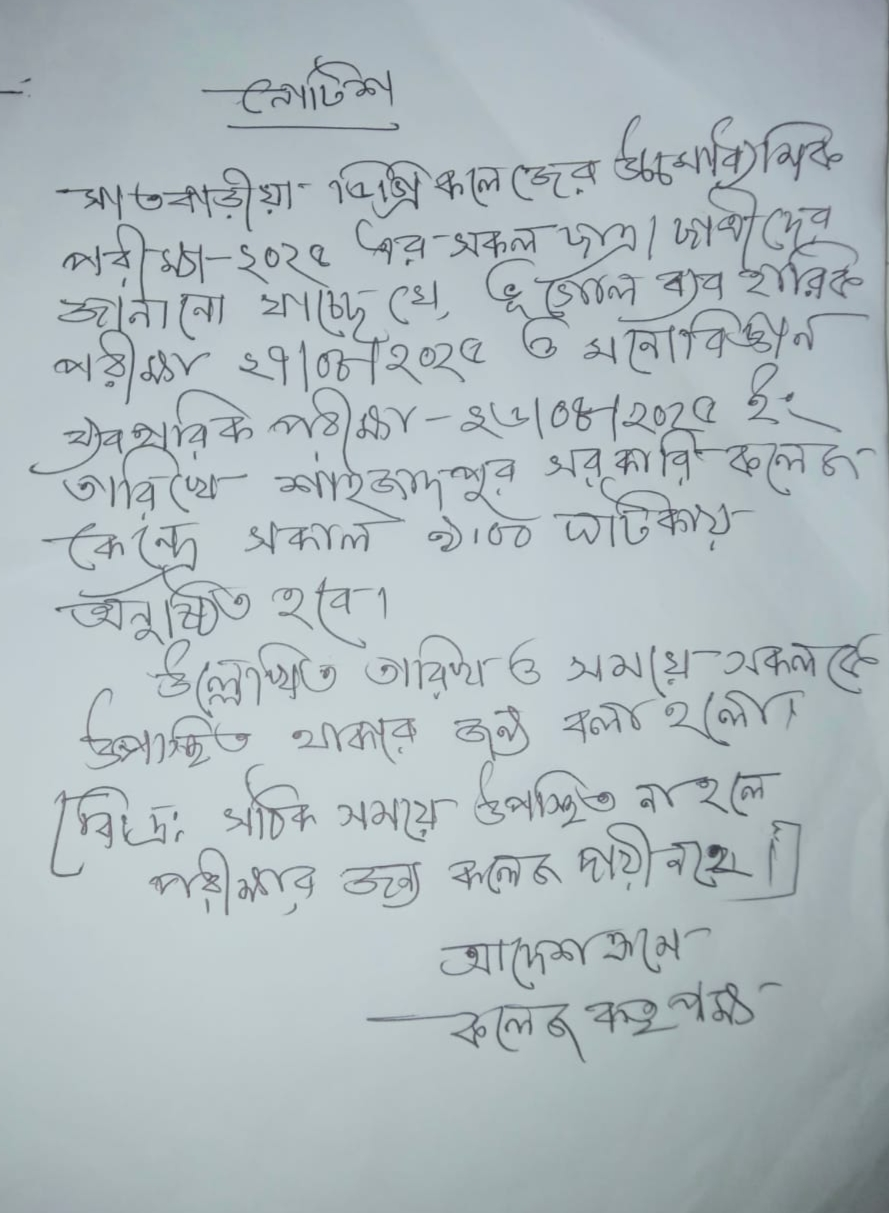 নোটিশ
সাতবাড়ীয়া ডিগ্রি কলেজের উচ্চমাধ্যমিক
পরীক্ষা-২০২৫ এর সকল ছাত্র/ছাত্রীদের
জানানো যাচ্ছে যে, ভূগোল ব্যবহারিক
পরীক্ষা ২৭/০৮/২০২৫ ও মনোবিজ্ঞান
ব্যবহারিক পরীক্ষা - ২৬/০৮/২০২৫ ইং
তারিখে শাহজাদপুর সরকারি কলেজ
কেন্দ্রে সকাল ৯।০০ ঘটিকায়
অনুষ্ঠিত হবে।
উল্লেখিত তারিখ ও সময়ে সকলকে
উপস্থিত থাকার জন্য বলা হলো।
[বিঃদ্রঃ সঠিক সময়ে উপস্থিত না হলে
পরীক্ষার জন্য কলেজ দায়ী নহে।]
আদেশক্রমে
কলেজ কতৃপক্ষ